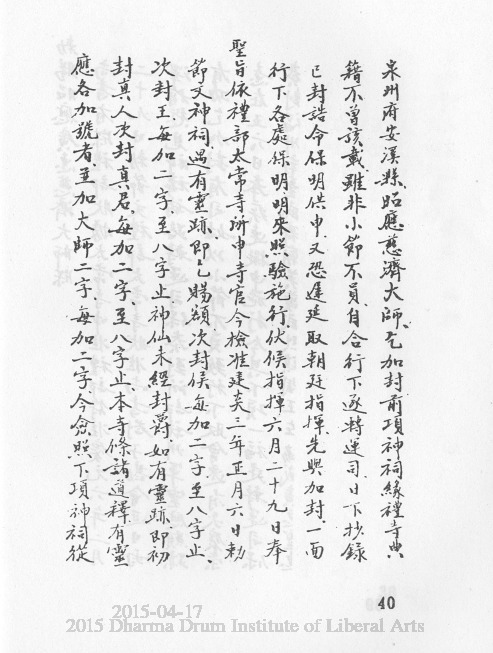 泉州府安溪縣昭應慈濟大師、乞加封前項神祠緣禮寺典
籍不曾該載、雖非小節不員、自合行下逐轉運司、日下抄錄
已封誥命保明供申、又恐遲延取朝廷指揮、先與加封、一面
行下各處保明、明來照驗施行、伏候指揮、六月二十九日奉
聖旨依禮部太常寺所申寺官今檢准建炎三年正月六日勅
節文神祠、遇有靈跡、即已賜額、次封侯、每加二字、至八字止、
次封王、每加二字、至八字止神仙未經封爵、如有靈跡、即初
封真人次封真君、每加二字、至八字止、本寺條諸道釋有靈
應各加號者、並加大師二字、每加二字今僉照下項神祠從
40
2015-04-17
2015 Dharma Drum Institute of Liberal Arts